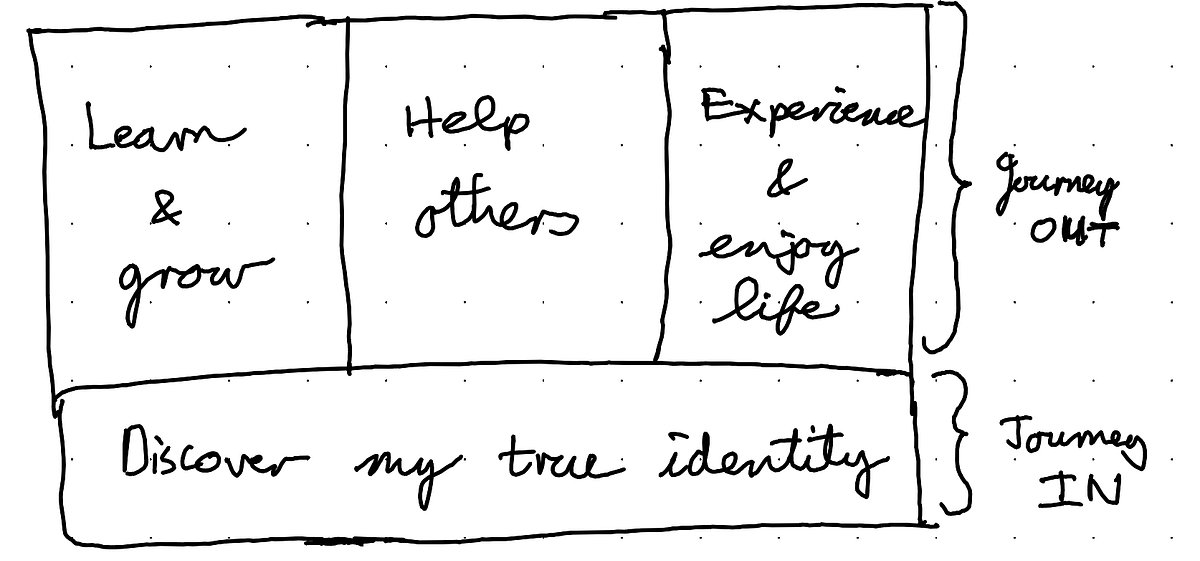 Learn
&
grow
Help
others
Experience
&
enjoy
life
Journey
OUT
Discover my true identity
Journey
IN